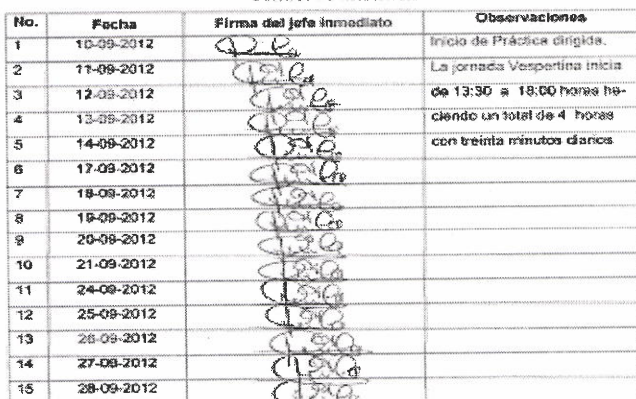 No. Fecha Firma del jefe inmediato Observaciones
1 10-09-2012 Inicio de Práctica dirigida.
2 11-09-2012 La jornada Vespertina inicia
3 12-09-2012 de 13:30 a 18:00 horas ha-
4 13-09-2012 ciendo un total de 4 horas
5 14-09-2012 con treinta minutos diarios
6 17-09-2012
7 18-09-2012
8 19-09-2012
9 20-09-2012
10 21-09-2012
11 24-09-2012
12 25-09-2012
13 26-09-2012
14 27-09-2012
15 28-09-2012